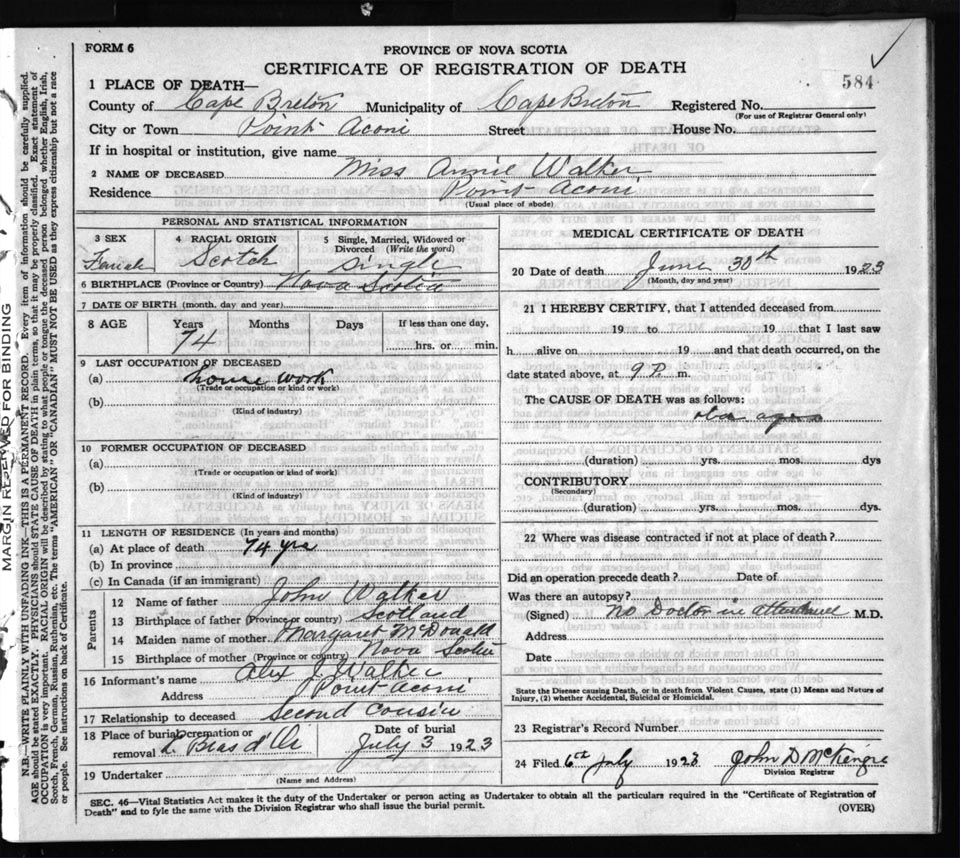 FORM 6
PROVINCE OF NOVA SCOTIA
CERTIFICATE OF REGISTRATION OF DEATH
584
1 PLACE OF DEATH—
County of Cape Breton Municipality of Cape Breton Registered No.
(For use of Registrar General only)
City or Town Point Aconi Street House No.
If in hospital or institution, give name
2 NAME OF DECEASED Miss Annie Walker
Residence Point Aconi
(Usual place of abode)
PERSONAL AND STATISTICAL INFORMATION
3 SEX 4 RACIAL ORIGIN 5 Single, Married, Widowed or Divorced (Write the word)
Female Scotch Single
6 BIRTHPLACE (Province or Country) Nova Scotia
7 DATE OF BIRTH (month, day and year)
8 AGE Years Months Days If less than one day,
74 hrs. or min.
9 LAST OCCUPATION OF DECEASED
(a) house work
(Trade or occupation or kind of work)
(b)
(Kind of industry)
10 FORMER OCCUPATION OF DECEASED
(a)
(Trade or occupation or kind of work)
(b)
(Kind of industry)
11 LENGTH OF RESIDENCE (In years and months)
(a) At place of death 74 yrs
(b) In province
(c) In Canada (if an immigrant)
Parents
12 Name of father John Walker
13 Birthplace of father (Province or country) Scotland
14 Maiden name of mother Margaret McDonald
15 Birthplace of mother (Province or country) Nova Scotia
16 Informant's name Alex J. Walker
Address Point Aconi
17 Relationship to deceased Second Cousin
18 Place of burial, cremation or removal L. Bras d'Or
Date of burial July 3 1923
19 Undertaker
(Name and Address)
MEDICAL CERTIFICATE OF DEATH
20 Date of death June 30th 1923
(Month, day and year)
21 I HEREBY CERTIFY, that I attended deceased from
19 to 19 that I last saw
h alive on 19 and that death occurred, on the
date stated above, at 9 P. m.
The CAUSE OF DEATH was as follows:
old age
(duration) yrs. mos. dys
CONTRIBUTORY
(Secondary)
(duration) yrs. mos. dys.
22 Where was disease contracted if not at place of death?
Did an operation precede death? Date of
Was there an autopsy?
(Signed) No Doctor in attendance M.D.
Address
Date
State the Disease causing Death, or in death from Violent Causes, state (1) Means and Nature of
Injury, (2) whether Accidental, Suicidal or Homicidal.
23 Registrar's Record Number
24 Filed 6th July 1923 John D McKenzie
Division Registrar
SEC. 46—Vital Statistics Act makes it the duty of the Undertaker or person acting as Undertaker to obtain all the particulars required in the "Certificate of Registration of
Death" and to fyle the same with the Division Registrar who shall issue the burial permit. (OVER)
MARGIN RESERVED FOR BINDING
N.B.—WRITE PLAINLY, WITH UNFADING INK—THIS IS A PERMANENT RECORD. Every item of information should be carefully supplied.
AGE should be stated EXACTLY. PHYSICIANS should STATE CAUSE OF DEATH in plain terms, so that it may be properly classified. Exact statement of
OCCUPATION is very important. RACIAL ORIGIN will be described by stating to what people or tongue the deceased person belonged, whether English, Irish,
Scotch, French, German, Russian, Ruthenian, etc. The terms "AMERICAN" OR "CANADIAN" MUST NOT BE USED as they express citizenship but not a race
or people. See instructions on back of Certificate.